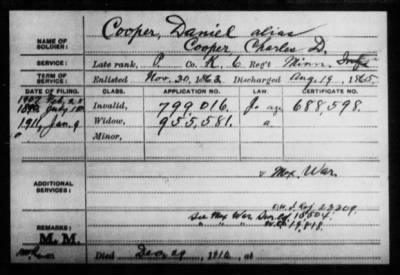 NAME OF SOLDIER: Cooper, Daniel alias
Cooper, Charles D.
SERVICE: Late rank, P. Co. K, 6 Reg't Minn. Inf.
TERM OF SERVICE: Enlisted Nov. 30, 1863 Discharged Aug. 19, 1865
DATE OF FILING. CLASS. APPLICATION NO. LAW. CERTIFICATE NO.
Invalid, 799,016. 688,598.
1916, Jan. 9 Widow, 955,581. a
Minor,
ADDITIONAL SERVICES:
Mex. War.
23209
See Mex War 18504
REMARKS:
M. M.
Died Dec. 1916, at